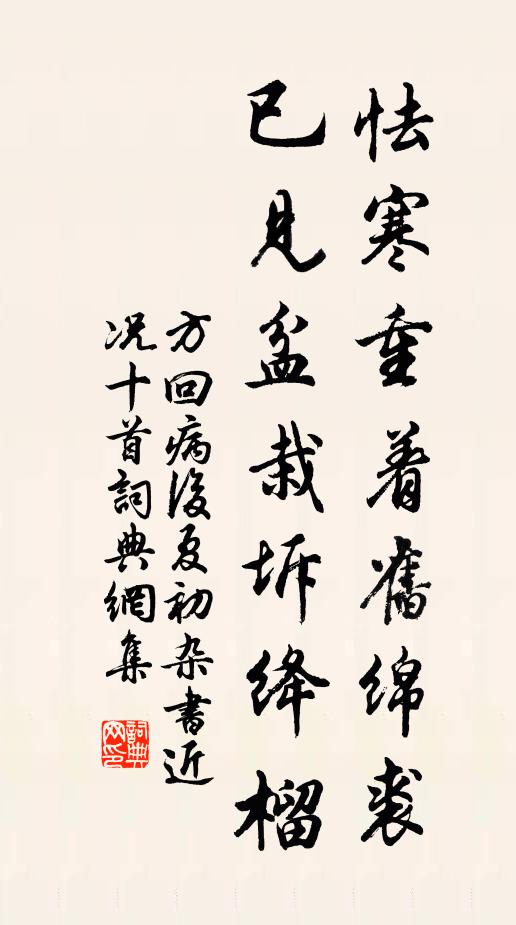 怯寒重着舊綿裘
已見盆栽坼绛榴
方回病後夏初杂書近
况十首詞典網集
詞典
网印